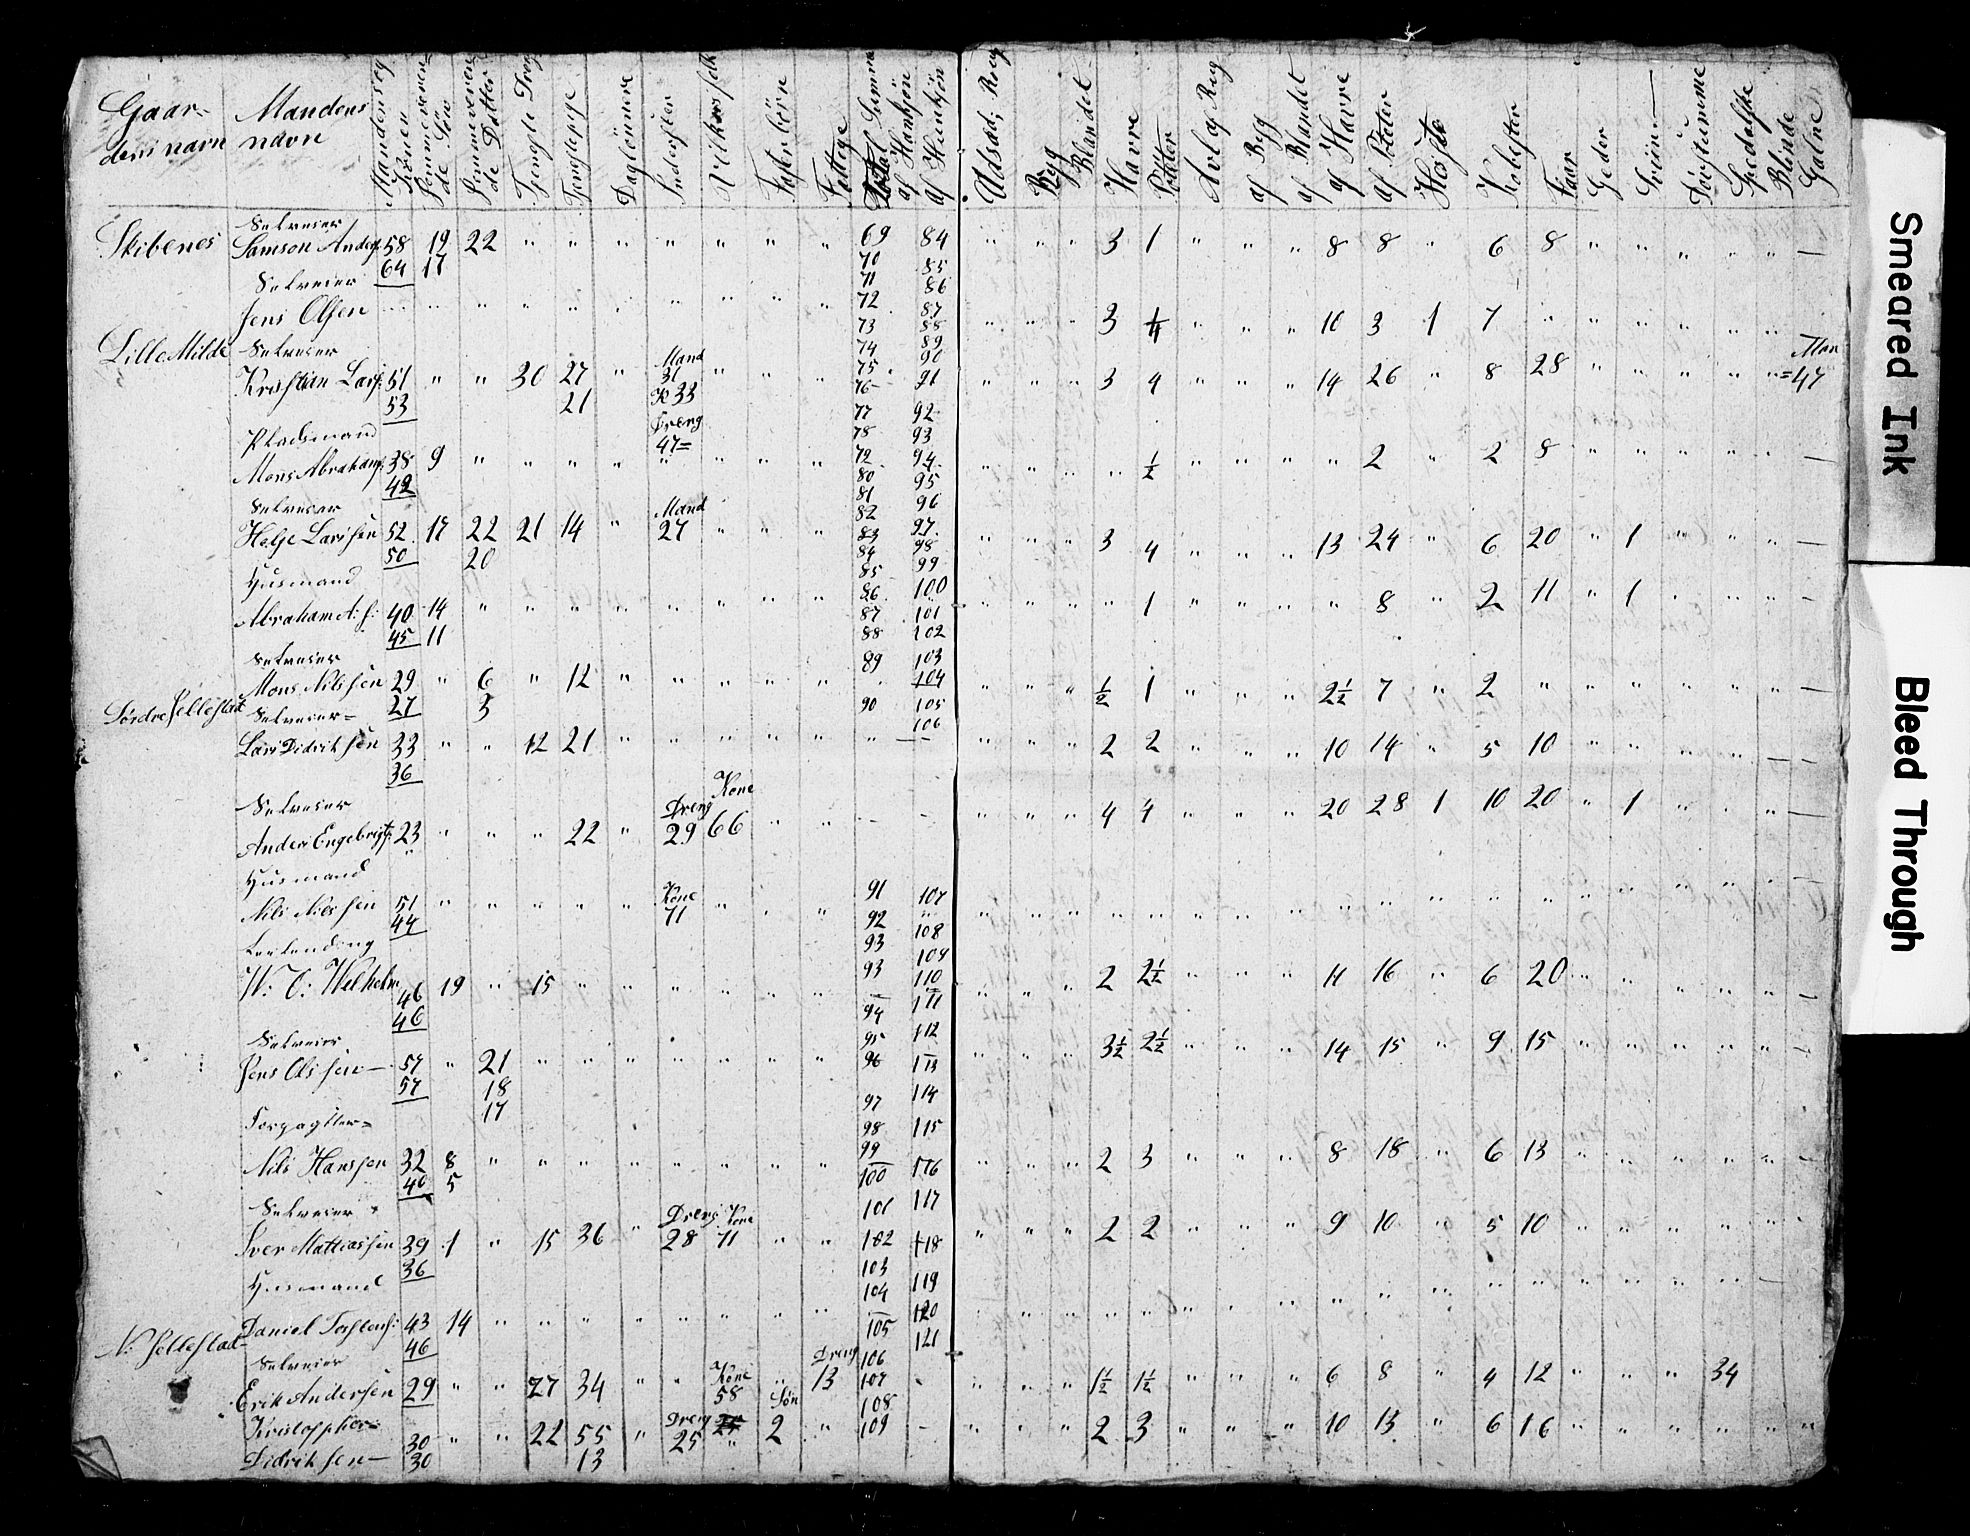 Gaar- Mandens
dens navn navn
Mandens og Konen
Søn
Datter
Tjenstepige
Dagleiere
Inderster
Fosterbørn
Fattige
Summa
af Hankjøn
af Hunkjøn
Udsæd, Rug
Byg
Blandet
Havre
Poteter
Avl af Rug
af Byg
af Blandet
af Havre
af Poteter
Heste
Kobester
Faar
Geder
Sviin
Døvstumme
Spedalske
Blinde
Galne
Selveier
Skibenes Samson Anders 58 19 22 " " " " " " " 69 84 " " " 3 1 " " " 8 8 " 6 8 " " " " " —
64 17 70 85
Selveier 71 86
Jens Olsen 72 87 " " " 3 1/4 " " " 10 3 1 7 " " " " " "
73 88
Lille Milde Selveier Mand 74 89 Man
Kristian Lars: 51 " " 30 27 " 31 " " " 75 90 " " " 3 4 " " " 14 26 " 8 28 " " " " " =47
53 21 K 33 76 91
Pladsmand Dreng 77 92
47= 78 93
Mons Abraham: 38 9 " " " " " " " " 72 94 " " " " 1/2 " " " " 2 " 2 8 " " " " " —
42 80 95
Selveier Mand 81 96
Helje Larssen 52 17 22 21 14 " 27 " " " 82 97 " " " 3 4 " " " 13 24 " 6 20 " 1 " " " —
50 20 83 98
Husmand 84 99
85 100
Abraham A: s: 40 14 " " " " " " " " 86 101 " " " " 1 " " " " 8 " 2 11 " 1 " " " —
45 11 87 102
Selveier 88 103
Mons Nilssen 29 " 6 " 12 " " " " " 89 104 " " " 1/2 1 " " " 2 1/2 7 " 2 " " " " " " —
Sørdre Sellestad Selveier= 27 3 90 105
106
Lars Didriksen 33 " " 12 21 " " " " " " — " " " 2 2 " " " 10 14 " 5 10 " " " " — —
36
Selveier Dreng Kone
Anders Engebrigts: 23 " " " 22 " 29 66 " " - - " " " 4 4 " " " 20 28 1 10 20 " 1 " " " —
Husmand
Kone
Nils Nilssen 51 " " " " " 71 " " " 91 107
44 92 108
Leilending 93 109
W: O: Wilhelm 46 19 " 15 " " " " " " 93 110 " " " 2 2 1/2 " " " 11 16 " 6 20 " " " " " —
46 94 111
Selveier 95 112
Jens Olssen — 57 " 21 " " " " " " " 96 113 " " " 3 1/2 2 1/2 " " " 14 15 " 9 15 " " " " " —
57 18
17 97 114
Forpagtter= 98 115
Nils Hanssen 32 8 " " " " " " " " 99 " " " 2 3 " " " 8 18 " 6 13 " " " " " —
40 5 100 116
Selveier Dreng Kone 101 117
Iver Mathiassen 39 1 " 15 36 " 28 71 " " 102 118 " " " 2 2 " " " 9 10 " 5 10 " " " " " "
36 103 119
Husmand 104 120
Daniel 43 14 " " " " " " " " 105 121
N: Sellestad 46
Selveier Kone Dreng 106
Erik Andersen 29 " " 27 34 " " 58 " 13 107 " " " 1 1/2 1 1/2 " " " 6 8 " 4 12 " " " 34
Dreng Søn 108
Kristopher= 30 " " 22 55 " 25 " 2 " 109 - " " " 2 3 " " " 10 13 " 6 16 " " " " " "
Didriksen — 30 13
Smeared Ink
Bleed Through